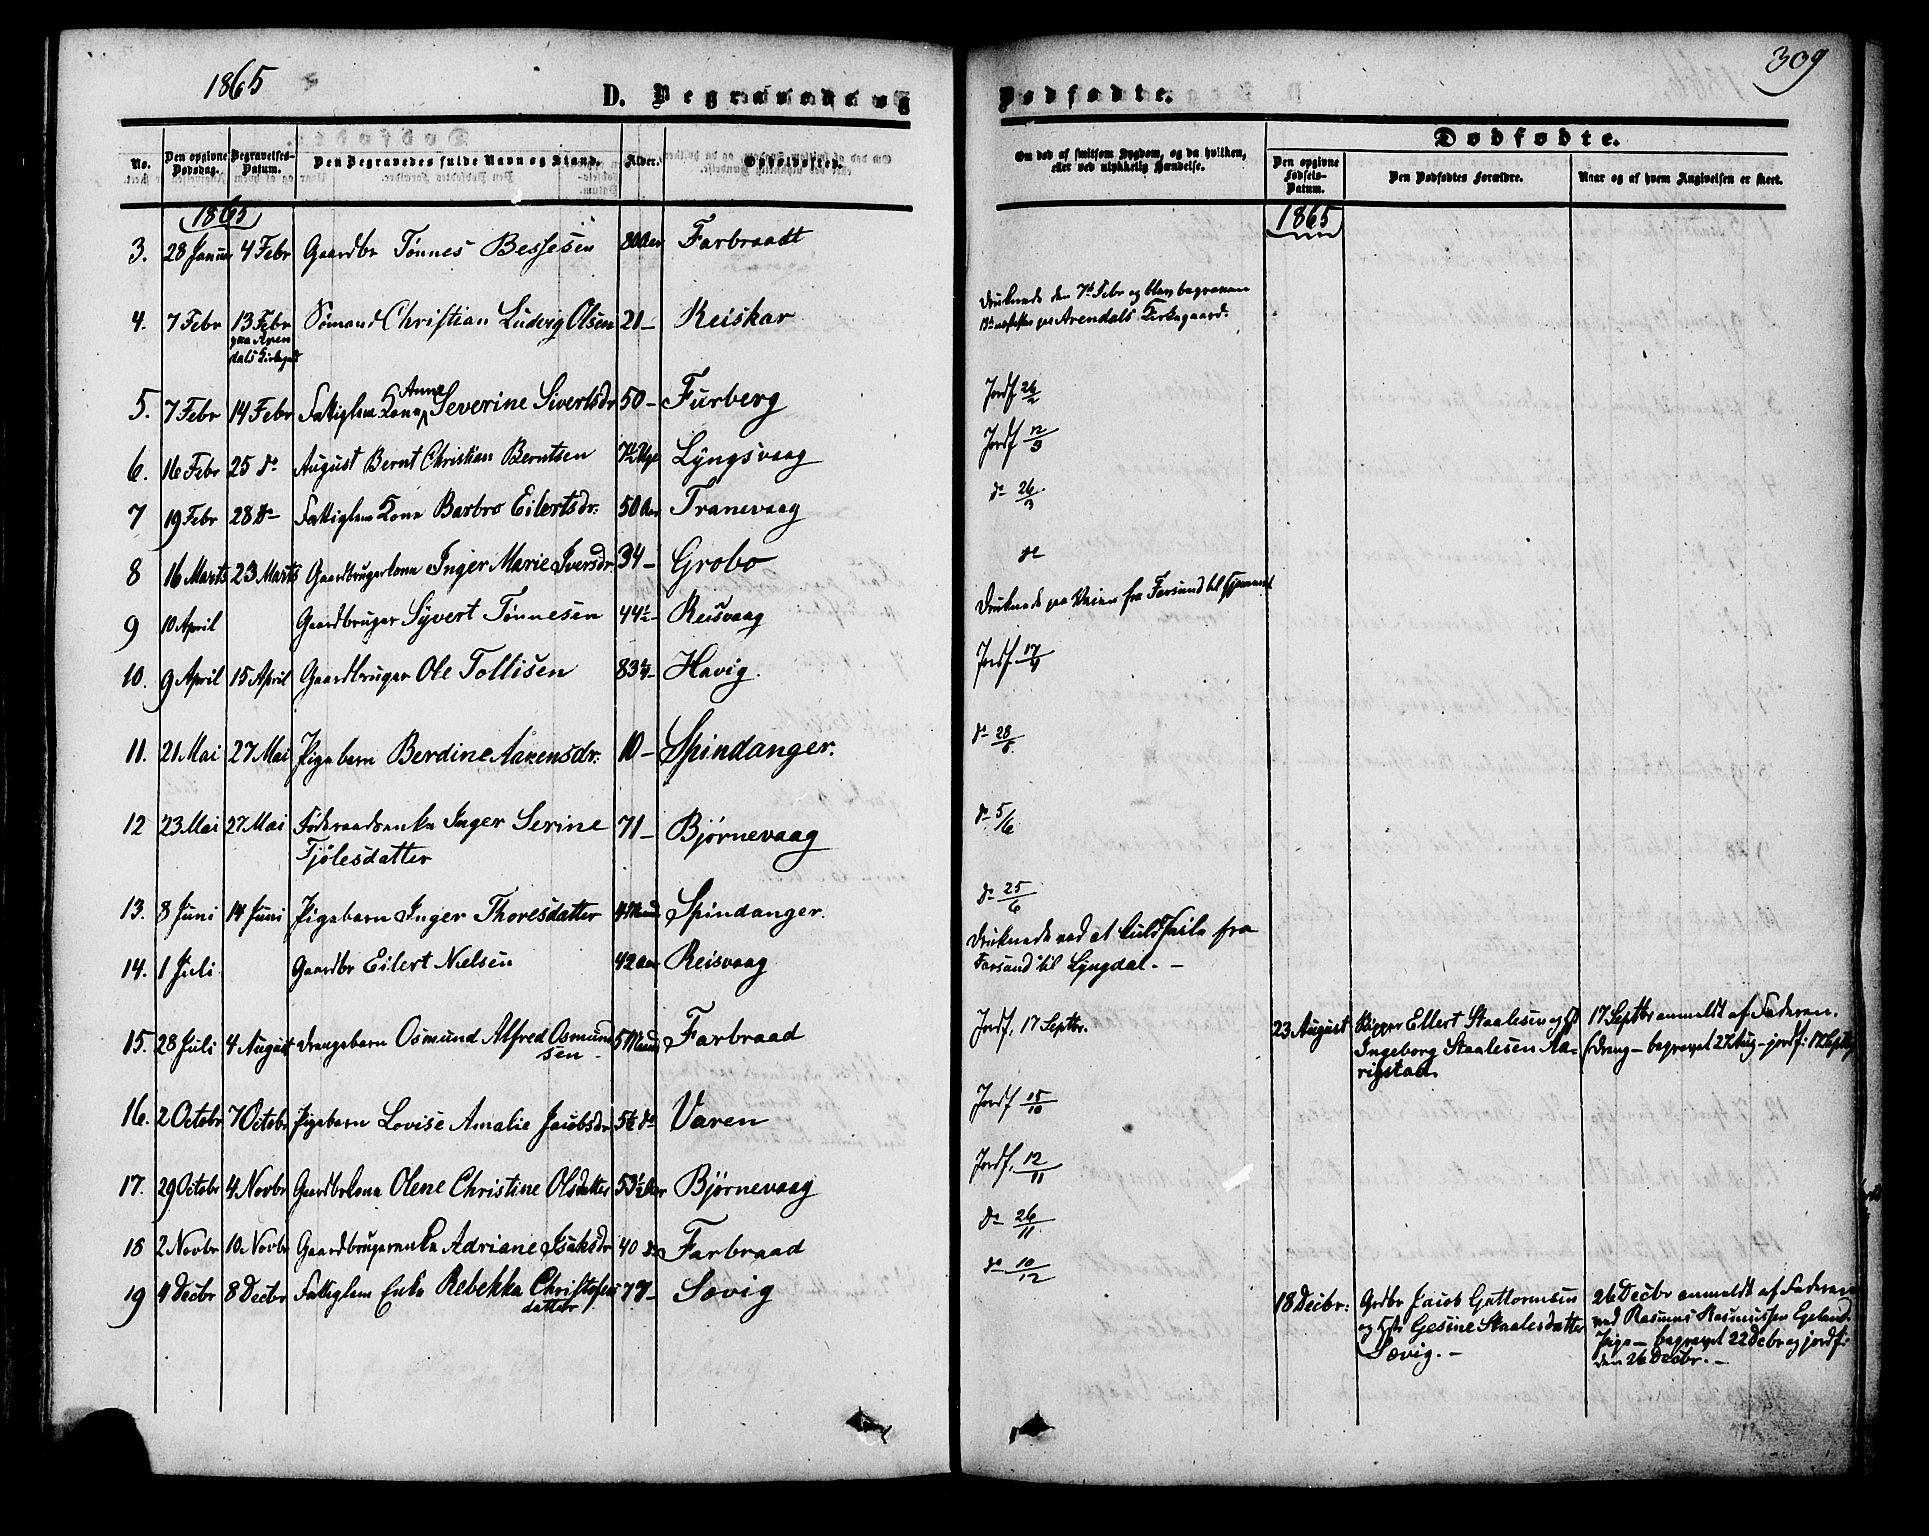 1865
D. Begravede og
Dødfødte.
309
No.
Den opgivne Dødsdag.
Begravelses-Datum.
Den Begravedes fulde Navn og Stand.
Alder.
Opholdssted.
Om død af smitsom Sygdom, og da hvilken, eller ved ulykkelig Hændelse.
Dødfødte.
Den opgivne Fødsels-Datum.
Den Dødfødtes Forældre.
Naar og af hvem Angivelsen er skeet.
1865
1865
3. 28 Januar 4 Febr Gaardbr Tønnes Bessesen 80 Aar Farbraadt
4. 7 Febr 13 Febr Sømand Christian Ludvig Olsen 21 – Reiskar
paa Aren
dals Kirkegd
Druknede den 7de Febr og blev begraven
13de paa Arendals Kirkegaard.
5. 7 Febr 14 Febr Fattiglem Kone Anne Severine Sivertsdr 50 – Furberg Jordf 26/2
6. 16 Febr 25 do August Bernt Christian Berntsen 7½ Uge Lyngsvaag Jordf 12/3
7 19 Febr 28 do Fattiglem Kone Barbro Eilertsdr: 50 Aar Tranevaag do 26/3
8 16 Marts 23 Marts Gaardbrugerkone Inger Marie Iversdr 34 – Grobo do
9 10 April Gaardbruger Syvert Tønnesen 44½ – Reisvaag Druknede paa Veien fra Farsund til Hjemmet
10. 9 April 15 April Gaardbruger Ole Tollisen 83¼ – Havig. Jordf 17/4
11. 21 Mai 27 Mai Pigebarn Berdine Aanensdr: 10 – Spindanger. do 28/5
12 23 Mai 27 Mai Føderaadsenke Inger Serine 71 – Bjørnevaag do 5/6
Tjølesdatter
13. 8 Juni 14 Juni Pigebarn Inger Thoresdatter 4 Maand Spindanger. do 25/6
14. 1 Juli Gaardbr Eilert Nielsen 42 Aar Reisvaag Druknede ved at kuldseile fra
Farsund til Lyngdal. –
15. 28 Juli 4 August Drengebarn Osmund Alfred Osmund 5 Maand Farbraad Jordf. 17 Septbr.
sen –
23 August Skipper Ellert Staalesen og H
Ingeborg Staalesen Aa-
rigstad.
17 Septbr anmeldt af Faderen.
(dreng – begravet 27 Aug – jordf: 17 Septbr
16. 2 Octobr 7 Octobr Pigebarn Lovise Amalie Jacobsdr 5½ do Varen Jordf 15/10
17. 29 Octobr 4 Novbr Gaardbrkone Olene Christine Olsdatter 53½ Aar Bjørnevaag Jordf. 12/11
18 2 Novbr 10 Novbr Gaardbrugerenke Adriane Isaksdr 40 do Farbraad do 26/11
19 4 Decbr 8 Decbr Fattiglem Enke Rebekka Christofers 77 – Sævig do 10/12
datter
18 Decbr: Grdbr Jacob Guttormsen
og Hst Gesine Staalesdatter
Sævig. –
26 Decbr anmeldt af Faderen
ved Rasmus Rasmussen Egeland.
Pige – begravet 22 Decbr og jordf:
den 26 Decbr. –